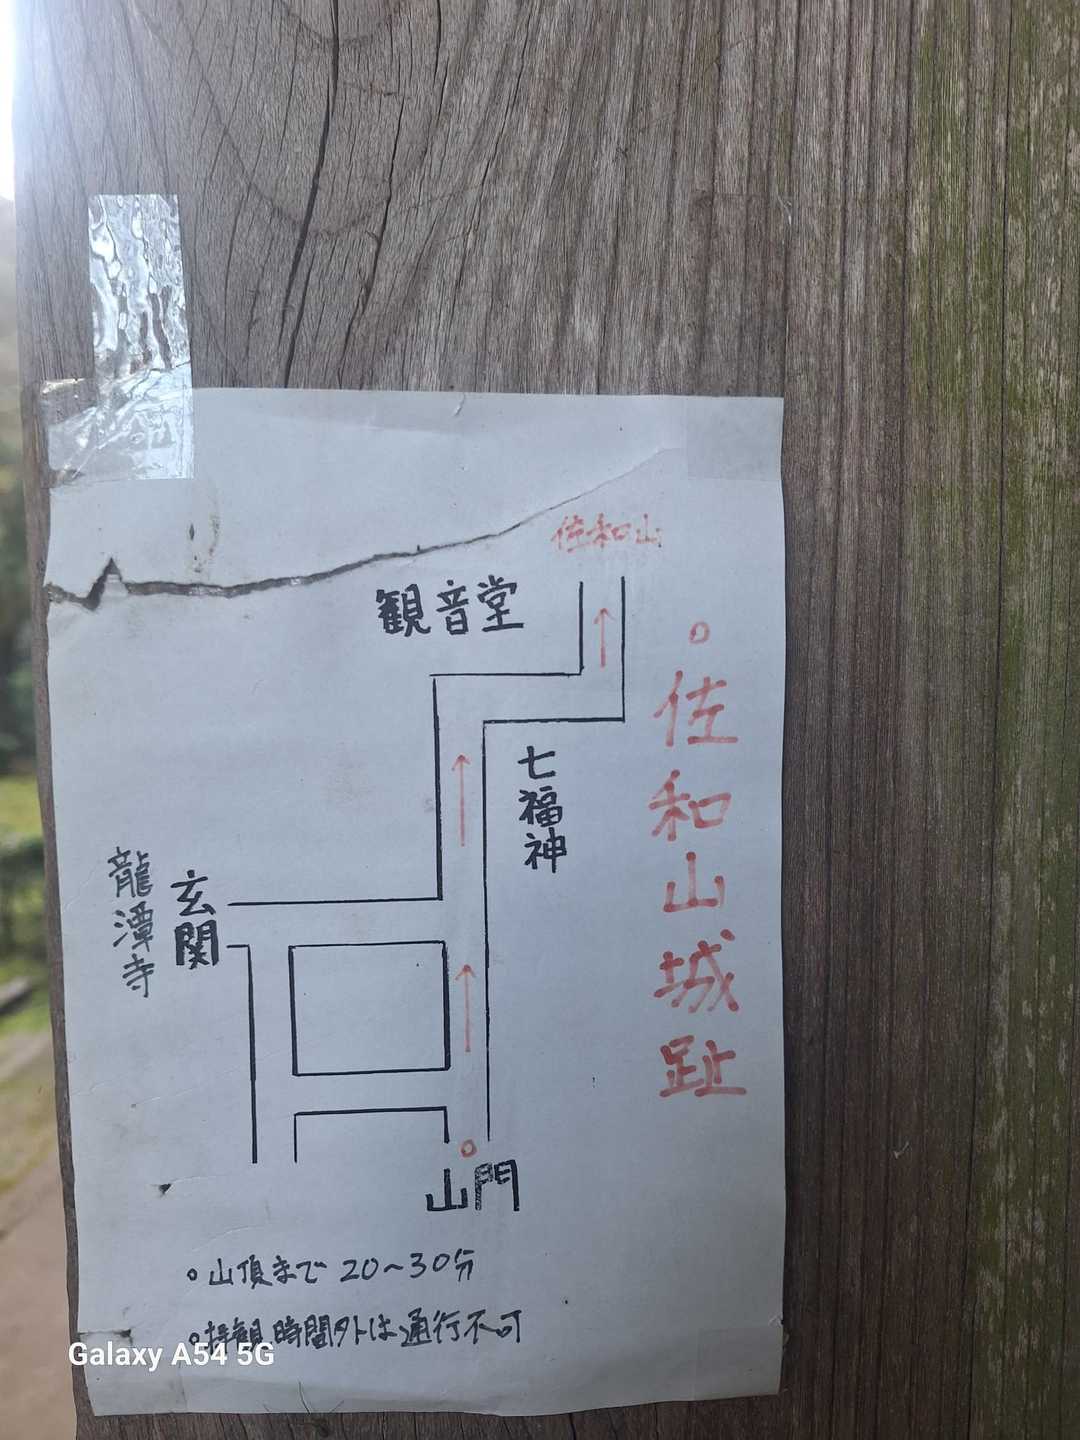 佐和山
観音堂
佐和山城趾
七福神
玄関
龍潭寺
山門
山頂まで 20~30分
拝観時間外は通行不可
Galaxy A54 5G